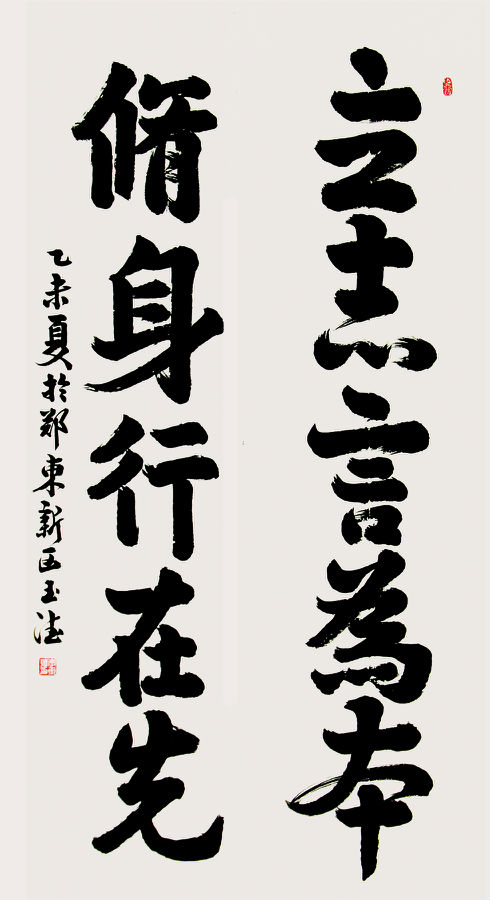 立志言為本
脩身行在先
乙未夏於郑東新区玉法